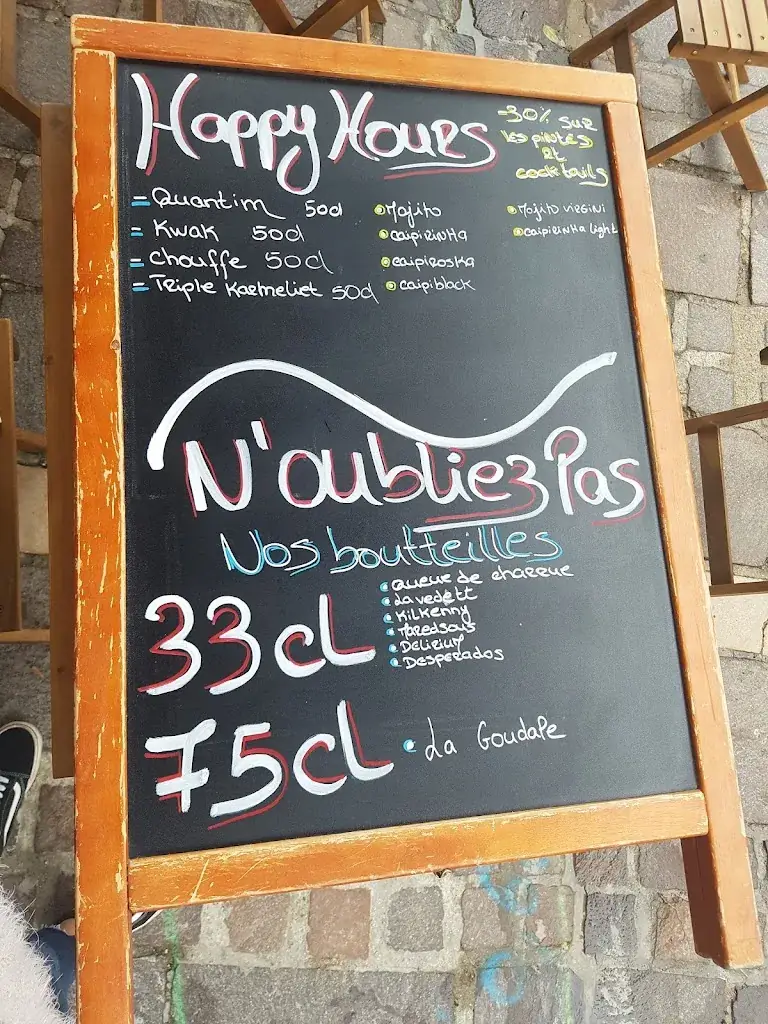 Happy Hours
-30% sur
les pintes
et
cocktails
Quantim 50d
Kwak 50d
Chouffe 50d
Triple Karmeliet 50d
Mojito
caipirinha
caipiroska
caipiblack
Mojito virgini
caipirinha light
N'oubliez Pas
Nos boutteilles
33cl
Queue de charrue
La vedett
Kilkenny
Maredsous
Delirium
Desperados
75cl
La Goudale